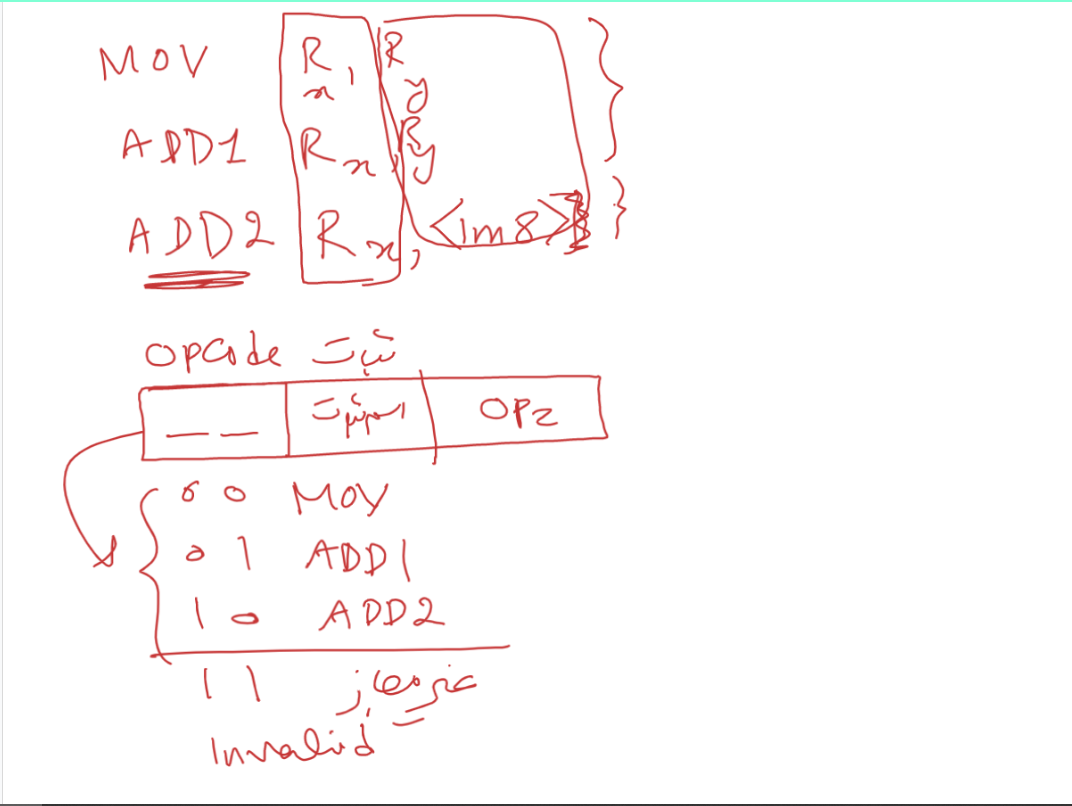 MOV Rx, Ry
ADD1 Rx, Ry
ADD2 Rx, <im8>
opcode ثبت
__ __ اسم ثبت OP2
0 0 MOV
0 1 ADD1
1 0 ADD2
1 1 غیرمجاز
Invalid